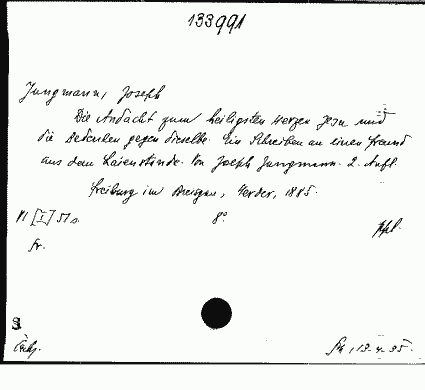 133991
Jungmann, Joseph
Die Andacht zum heiligsten Herzen Jesu und
die Bedenken gegen dieselbe. Ein Schreiben an einen Freund
aus dem Laienstande. Von Joseph Jungmann. 2. Aufl.
Freiburg im Breisgau, Herder, 1885.
VI [I] 51 s. 8°
fr.